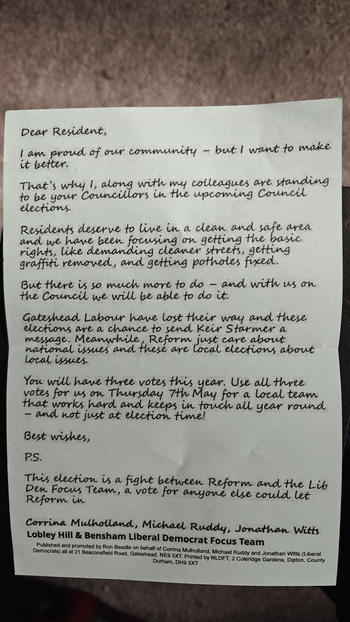 Dear Resident,
I am proud of our community – but I want to make
it better.
That's why I, along with my colleagues are standing
to be your Councillors in the upcoming Council
elections.
Residents deserve to live in a clean and safe area
and we have been focusing on getting the basic
rights, like demanding cleaner streets, getting
graffiti removed, and getting potholes fixed.
But there is so much more to do – and with us on
the Council we will be able to do it.
Gateshead Labour have lost their way and these
elections are a chance to send Keir Starmer a
message. Meanwhile, Reform just care about
national issues and these are local elections about
local issues.
You will have three votes this year. Use all three
votes for us on Thursday 7th May for a local team
that works hard and keeps in touch all year round
– and not just at election time!
Best wishes,
P.S.
This election is a fight between Reform and the Lib
Den Focus Team, a vote for anyone else could let
Reform in
Corrina Mulholland, Michael Ruddy, Jonathan Witts
Lobley Hill & Bensham Liberal Democrat Focus Team
Published and promoted by Ron Beadle on behalf of Corrina Mulholland, Michael Ruddy and Jonathan Witts (Liberal
Democrats) all at 21 Beaconsfield Road, Gateshead, NE9 5XT. Printed by NLDFT, 2 Coleridge Gardens, Dipton, County
Durham, DH9 5XT